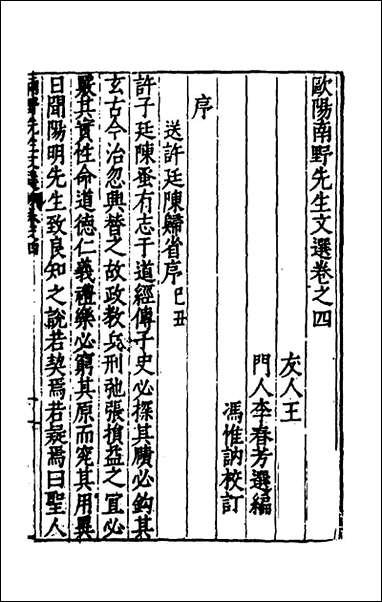 歐陽南野先生文選卷之四
友人王
門人李春芳選編
馮惟訥校訂
序
送許廷陳歸省序己丑
許子廷陳蚤有志于道經傳子史必探其賾必鈎其
玄古今治忽興替之故政教兵刑弛張損益之宜必
覈其實性命道德仁義禮樂必窮其原而究其用異
日聞陽明先生致良知之說若契焉若疑焉曰聖人
南野先生文選卷之四